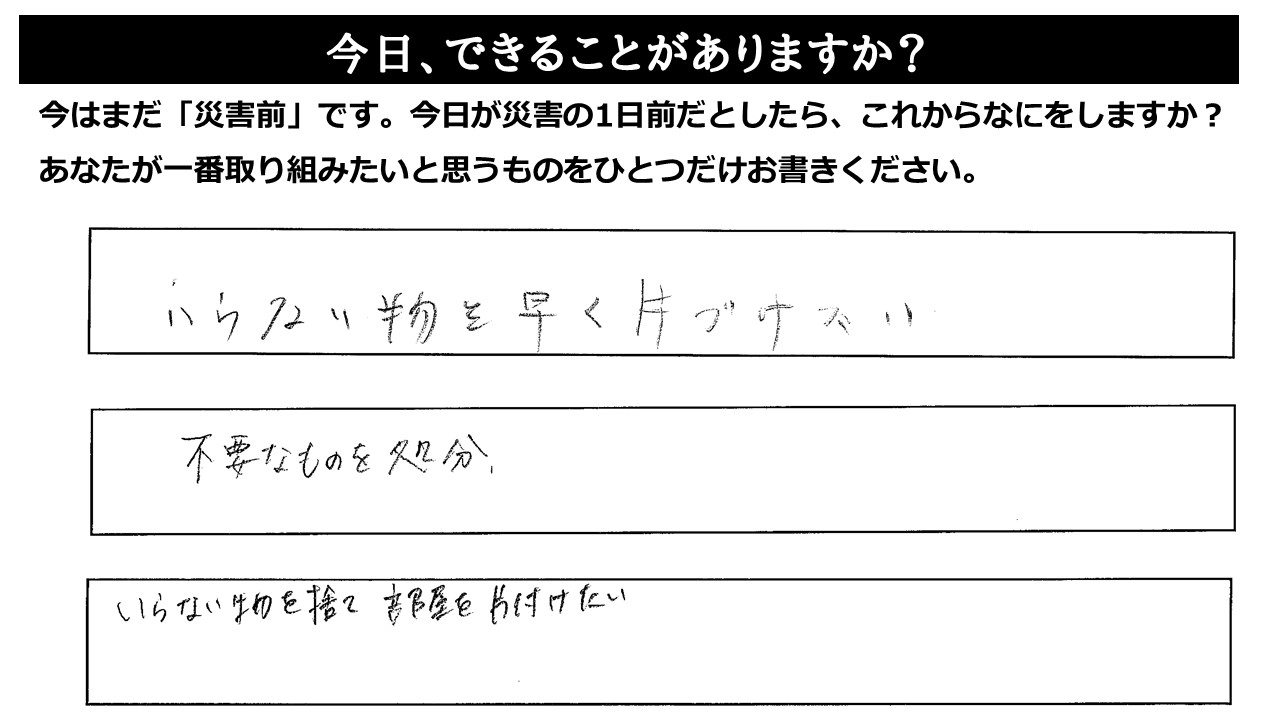 今日、できることがありますか？
今はまだ「災害前」です。今日が災害の1日前だとしたら、これからなにをしますか？
あなたが一番取り組みたいと思うものをひとつだけお書きください。
いらない物を早く片づけたい
不要なものを処分、
いらない物を捨て 部屋を片付けたい